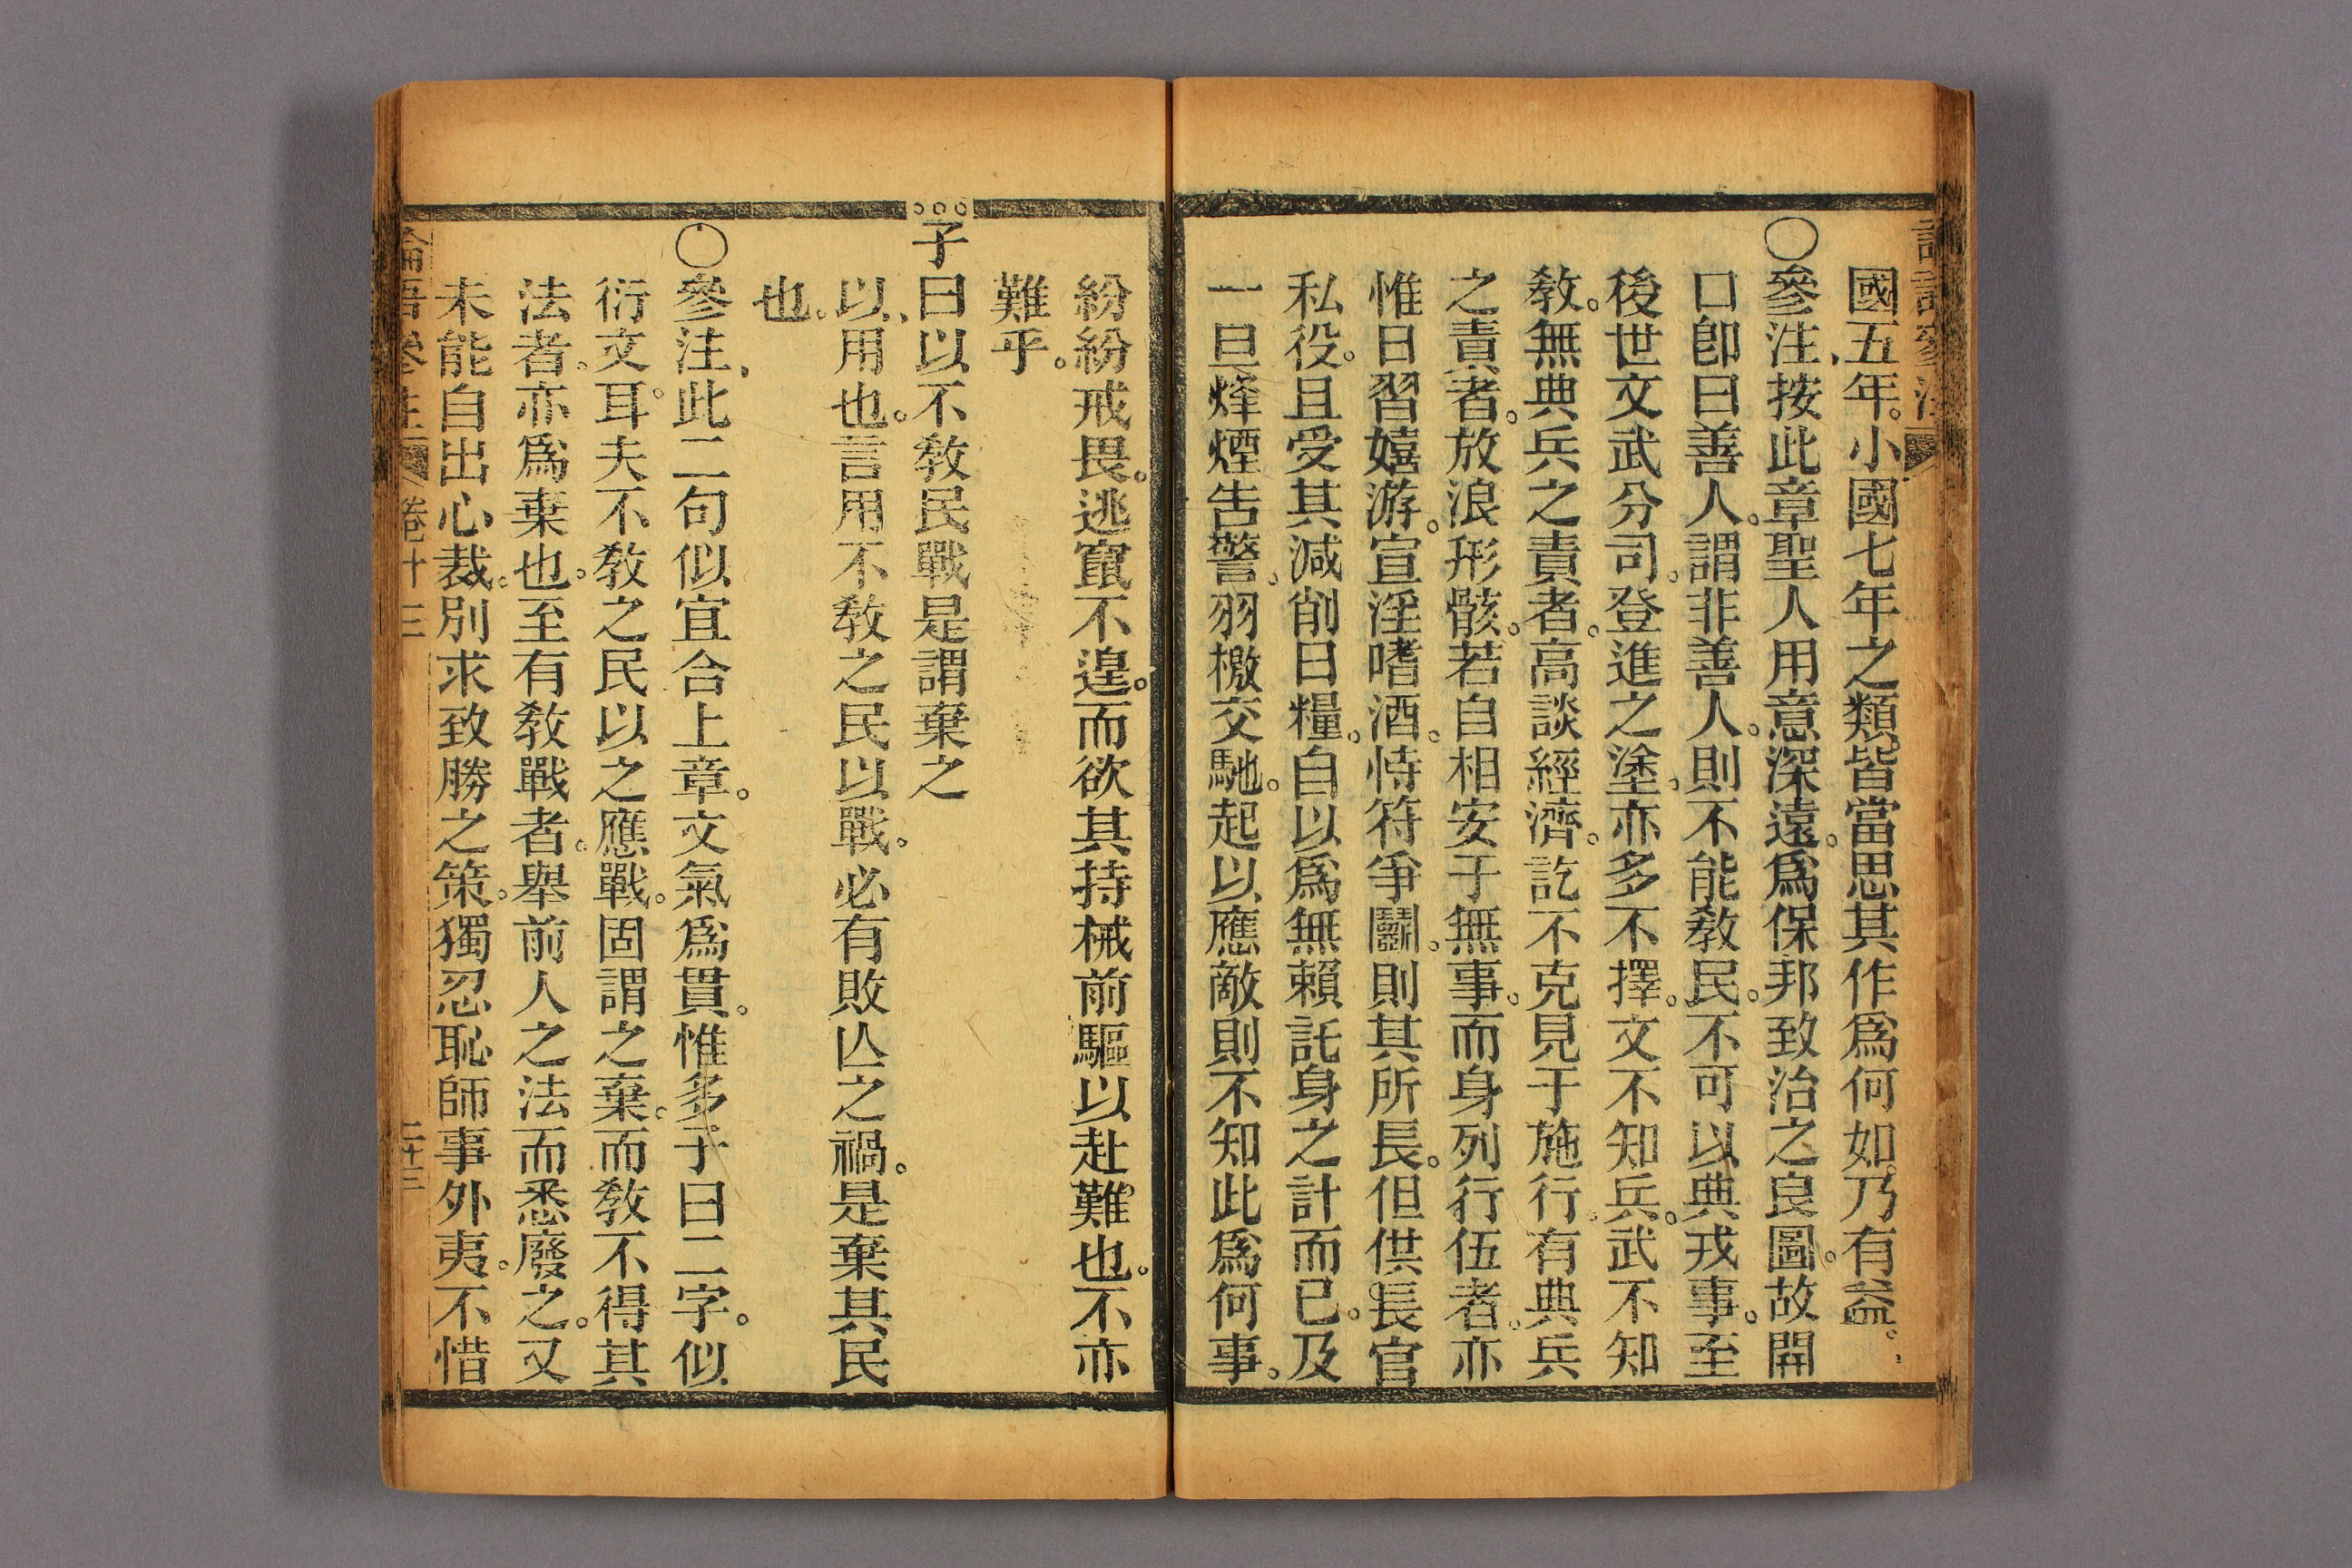 國五年。小國七年之類。皆當思其作爲何如。乃有益。
〇參注、按此章聖人用意深遠。爲保邦致治之良圖。故開
口卽曰善人。謂非善人。則不能敎民。不可以典戎事。至
後世文武分司。登進之塗。亦多不擇。文不知兵。武不知
敎。無典兵之責者。高談經濟。訖不克見于施行。有典兵
之責者。放浪形骸。若自相安于無事。而身列行伍者。亦
惟日習嬉游。宣淫嗜酒。恃符爭鬬。則其所長。但供長官
私役。且受其減削日糧。自以爲無賴託身之計而已。及
一旦烽煙告警。羽檄交馳。起以應敵則不知此爲何事。
紛紛戒畏。逃竄不遑。而欲其持械前驅以赴難也。不亦
難乎。
子曰以不敎民戰是謂棄之
以、用也。言用不敎之民以戰。必有敗亾之禍。是棄其民
也。
〇參注、此二句似宜合上章。文氣爲貫。惟多子曰二字。似
衍文耳。夫不敎之民以之應戰。固謂之棄。而敎不得其
法者。亦爲棄也。至有敎戰者。舉前人之法而悉廢之。又
未能自出心裁。別求致勝之策。獨忍恥師事外夷。不惜
論語參注 卷十三 二十三